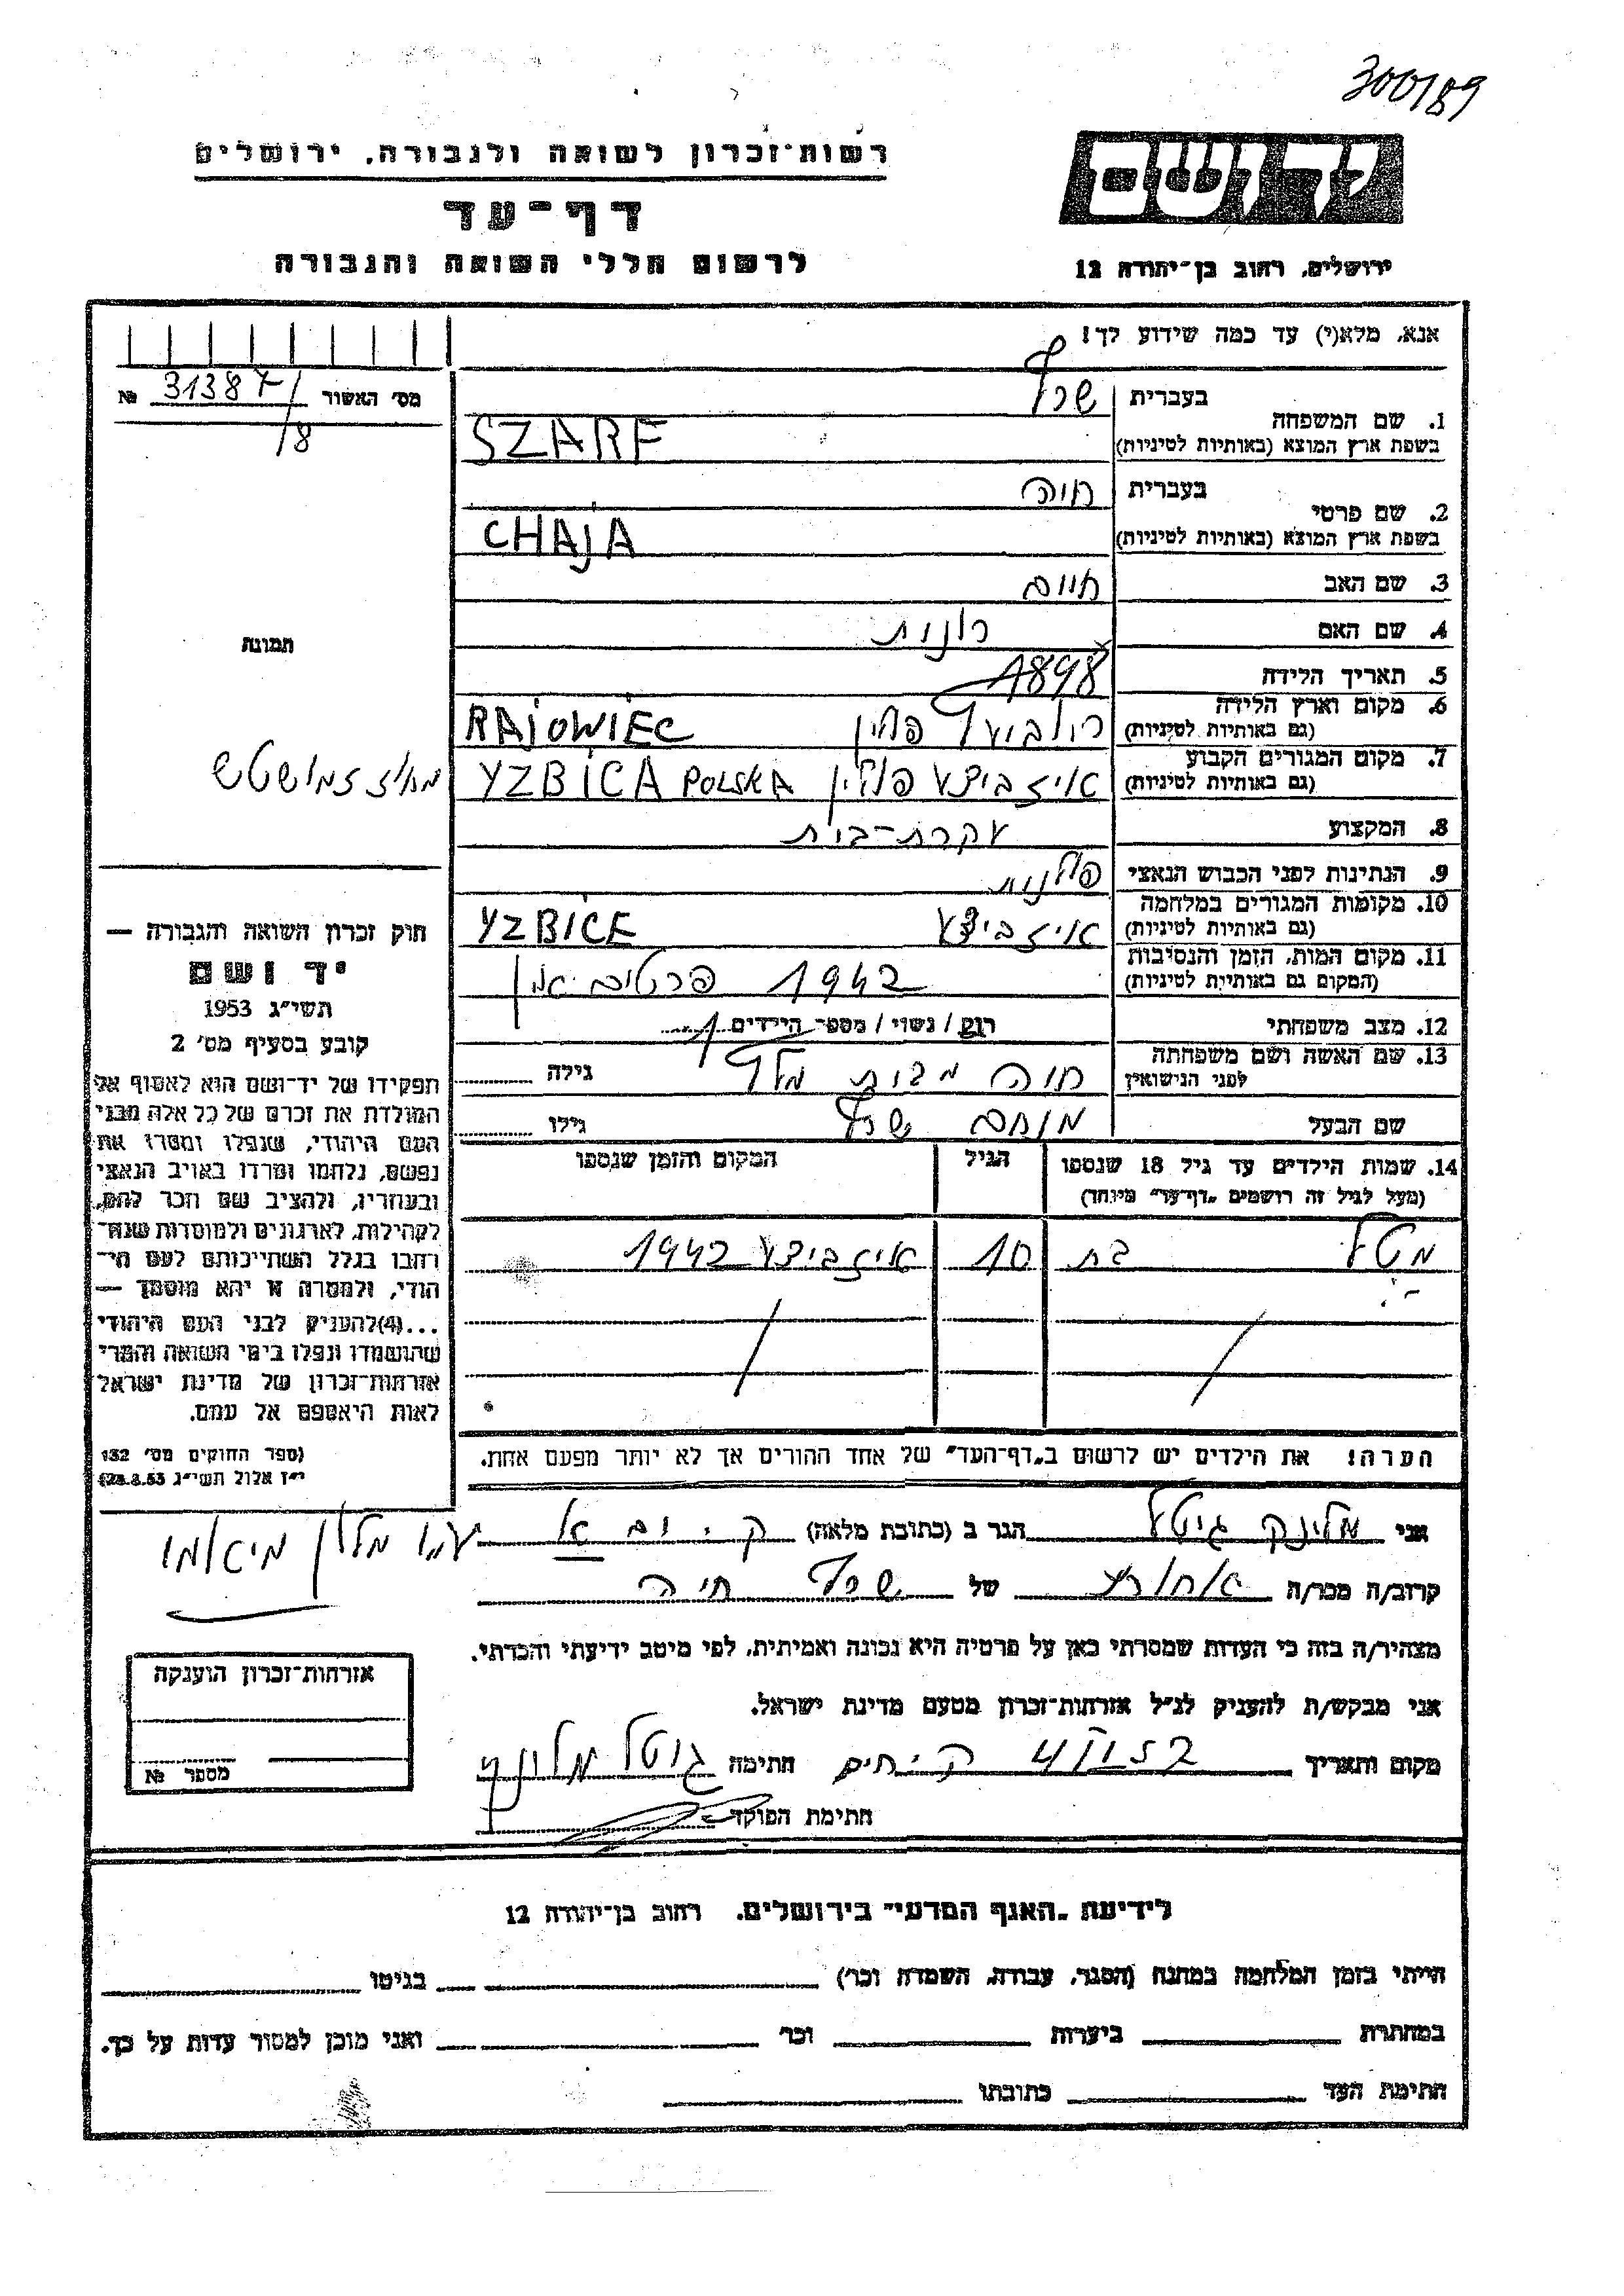 300189
רשות־זכרון לשואה ולגבורה, ירושלים
דף־עד
לרשום חללי השואה והגבורה
יד ושם
ירושלים, רחוב בן־יהודה 12
אנא, מלא(י) עד כמה שידוע לך!
מס׳ האשור 31387/ №
/8
בעברית שרף
1. שם המשפחה
בשפת ארץ המוצא (באותיות לטיניות) SZARF
בעברית חיה
2. שם פרטי
בשפת ארץ המוצא (באותיות לטיניות) CHAJA
3. שם האב חיים
4. שם האם
5. תאריך הלידה 1898
6. מקום וארץ הלידה
(גם באותיות לטיניות) פולין RAJOWIEC
7. מקום המגורים הקבוע
(גם באותיות לטיניות) איזביצע פולין YZBICA POLSKA
8. המקצוע עקרת-בית
9. הנתינות לפני הכבוש הנאצי פולנית
10. מקומות המגורים במלחמה
(גם באותיות לטיניות) איזביצע YZBICE
11. מקום המות, הזמן והנסיבות
(המקום גם באותיות לטיניות) 1942 פרטים אין
12. מצב משפחתי רוק / נשוי / מספר הילדים 1
13. שם האשה ושם משפחתה
לפני הנישואין חיה מבית גילה
שם הבעל מנחם שרף גילו
14. שמות הילדים עד גיל 18 שנספו
(מעל לגיל זה רושמים „דף־עד״ מיוחד)
הגיל
המקום והזמן שנספו
בת 10 איזביצע 1942
הערה! את הילדים יש לרשום ב„דף־העד״ של אחד ההורים אך לא יותר מפעם אחת.
תמונה
מחוז
חוק זכרון השואה והגבורה —
יד ושם
תשי״ג 1953
קובע בסעיף מס׳ 2
תפקידו של יד־ושם הוא לאסוף אל
המולדת את זכרם של כל אלה מבני
העם היהודי, שנפלו ומסרו את
נפשם, נלחמו ומרדו באויב הנאצי
ובעוזריו, ולהציב שם וזכר להם,
לקהילות, לארגונים ולמוסדות שנח־
רבו בגלל השתייכותם לעם הי־
הודי, ולמטרה זו יהא מוסמך —
...(4)להעניק לבני העם היהודי
שהושמדו ונפלו בימי השואה והמרי
אזרחות־זכרון של מדינת ישראל
לאות היאספם אל עמם.
(ספר החוקים מס׳ 132
י״ז אלול תשי״ג 28.8.53)
אני מלינק גיטל הגר ב (כתובת מלאה) ק. ים א
ע״י מלון מיאמי
קרוב/ה מכר/ה אחות של שרף חיה
מצהיר/ה בזה כי העדות שמסרתי כאן על פרטיה היא נכונה ואמיתית, לפי מיטב ידיעתי והכרתי.
אני מבקש/ת להעניק לנ״ל אזרחות־זכרון מטעם מדינת ישראל.
מקום ותאריך חתימה
חתימת הפוקד
אזרחות־זכרון הוענקה
מספר №
לידיעת „האגף המדעי״ בירושלים, רחוב בן־יהודה 12
הייתי בזמן המלחמה במחנה (הסגר, עבודה, השמדה וכו׳) בגיטו
במחתרת ביערות וכו׳ ואני מוכן למסור עדות על כך.
חתימת העד כתובתו